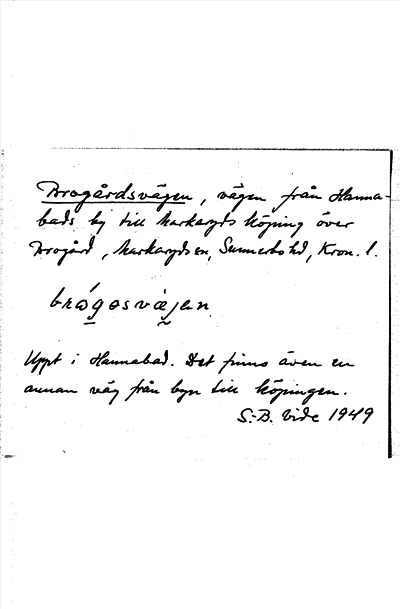 Brogårdsvägen, vägen från Hanna-
bads by till Markaryds köping över
Brogård, Markaryds sn, Sunnerbo hd, Kron. l.
brógosvàjen
Uppt i Hannabad. Det finns även en
annan väg från byn till köpingen.
S.-B. Vide 1949